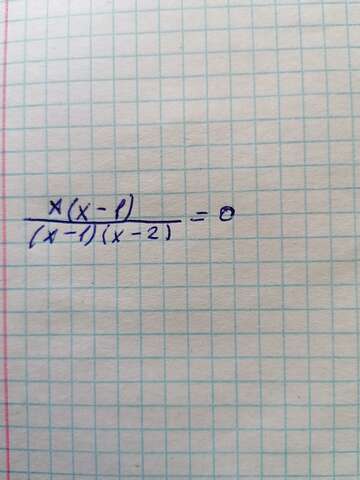 x(x-1)
(x-1)(x-2) = 0